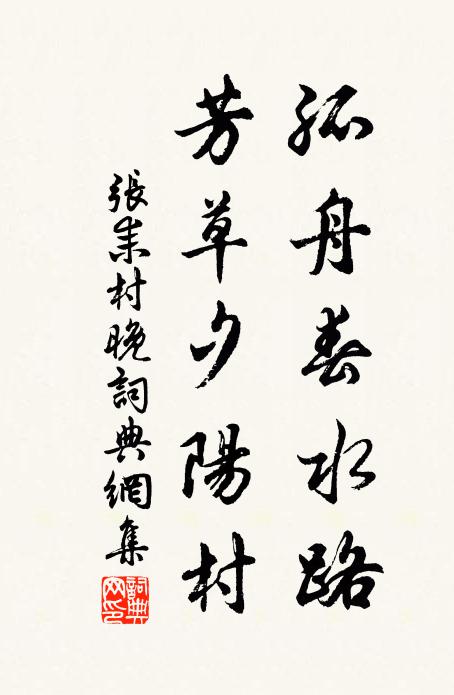 孤舟春水路
芳草夕陽村
張耒村晚詞典網集
詞典网印